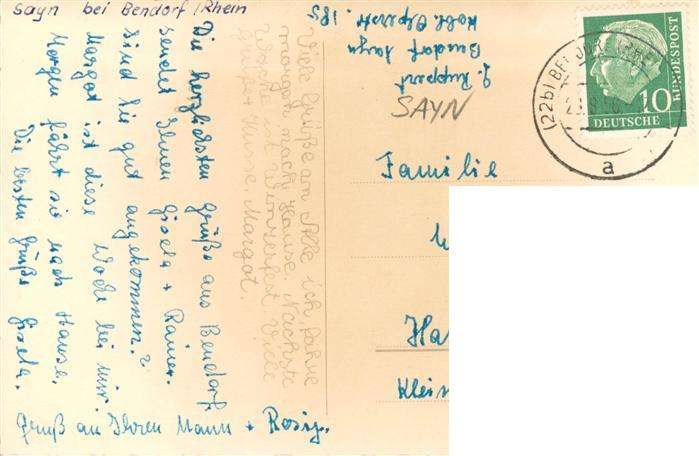 Sayn bei Bendorf/Rhein
Die herzlichsten Grüße aus Bendorf
sendet Ihnen Gisela + Rainer.
Sind Sie gut angekommen?
Margot ist diese Woche bei mir.
Morgen fährt sie nach Hause.
Die besten Grüße Gisela.
Gruß an Ihren Mann + Rosig.
Viele Grüße an Alle ich fahre
morgen nach Hause. Nächste
Woche ist Winzerfest Viele
Küsse, Margot.
G. Ruppert
Bendorf Sayn
185
SAYN
Familie
Ha
Klei
(22b) BE
a
10
DEUTSCHE
BUNDESPOST